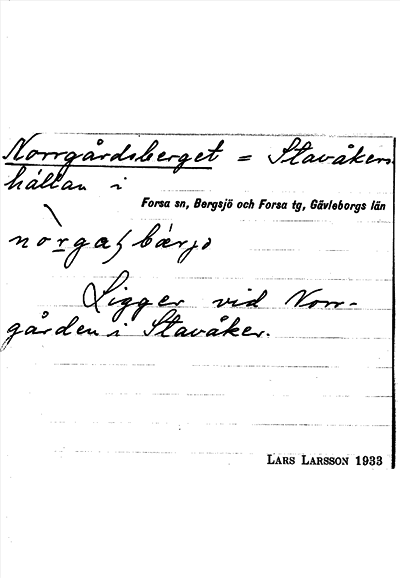 Norrgårdsberget = Stavåkers
hällan i
Forsa sn, Bergsjö och Forsa tg, Gävleborgs län
Ligger vid Norr-
gården i Stavåker.
LARS LARSSON 1933